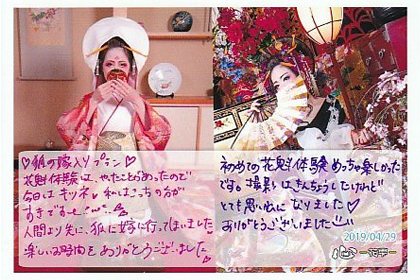 ♡狐の嫁入りプラン♡
花魁体験は、やったことあったので
今日はキツネ♥ 私はこっちの方が
すきです
人間より先に、狐に嫁に行ってしまいました
楽しいお時間をありがとうございました
初めての花魁体験めっちゃ楽しかった
です。撮影はきんちょうしたけれど
とても思い出になりました♡
ありがとうございました
2019/04/29